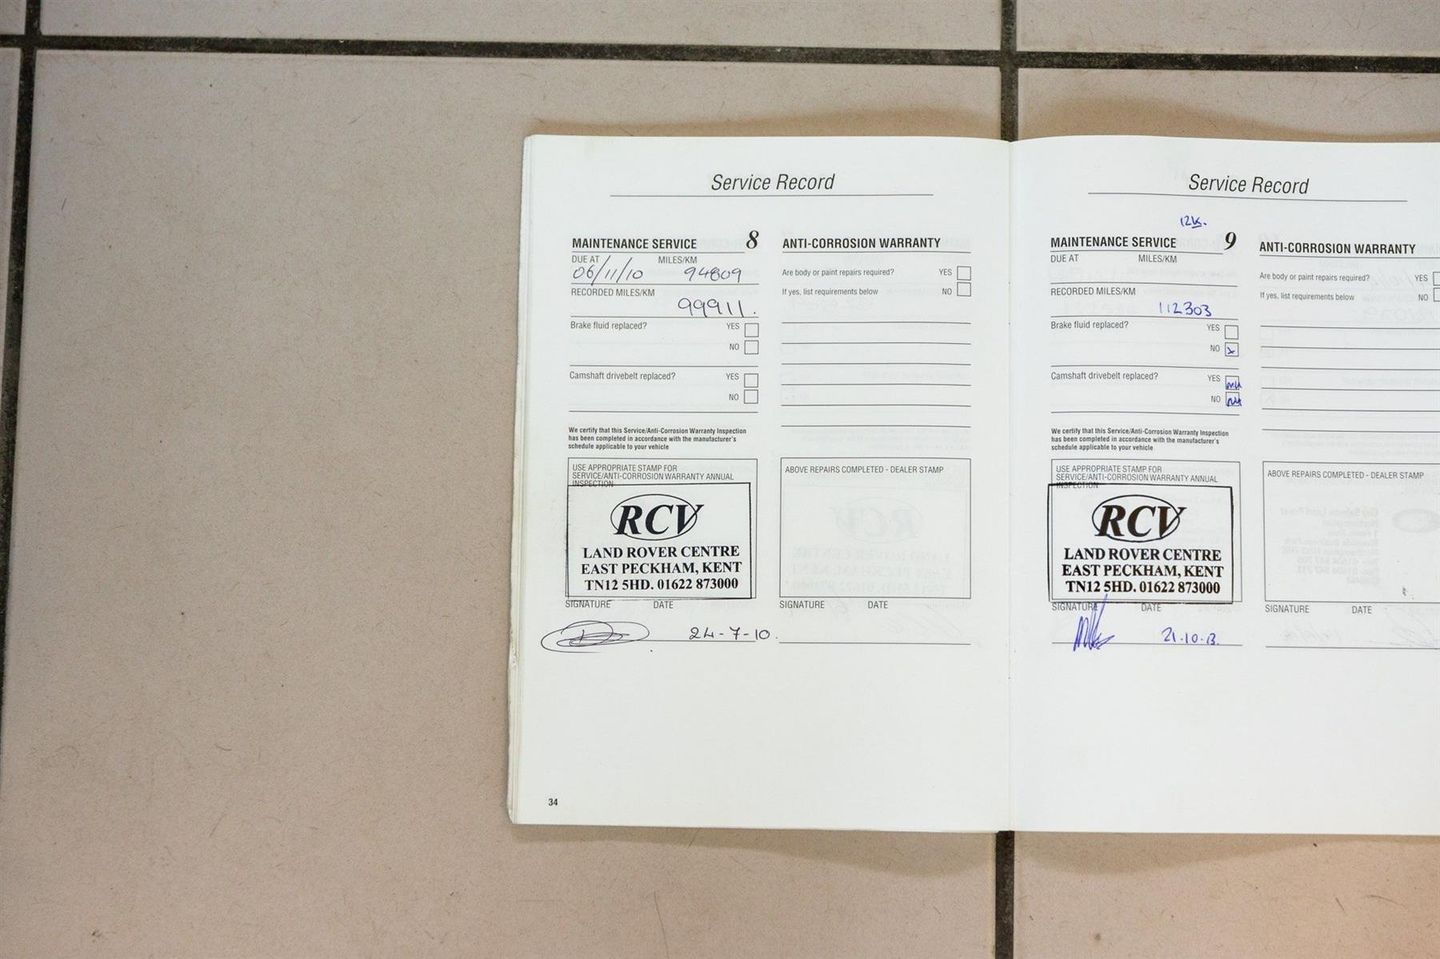 Service Record
MAINTENANCE SERVICE 8
DUE AT MILES/KM
06/11/10 94809
RECORDED MILES/KM
99911.
Brake fluid replaced? YES
NO
Camshaft drivebelt replaced? YES
NO
We certify that this Service/Anti-Corrosion Warranty Inspection
has been completed in accordance with the manufacturer's
schedule applicable to your vehicle
USE APPROPRIATE STAMP FOR
SERVICE/ANTI-CORROSION WARRANTY ANNUAL
INSPECTION
RCV
LAND ROVER CENTRE
EAST PECKHAM, KENT
TN12 5HD. 01622 873000
SIGNATURE DATE
24-7-10.
ANTI-CORROSION WARRANTY
Are body or paint repairs required? YES
If yes, list requirements below NO
ABOVE REPAIRS COMPLETED - DEALER STAMP
SIGNATURE DATE
34
Service Record
12K.
MAINTENANCE SERVICE 9
DUE AT MILES/KM
RECORDED MILES/KM
112303
Brake fluid replaced? YES
NO x
Camshaft drivebelt replaced? YES
NO
We certify that this Service/Anti-Corrosion Warranty Inspection
has been completed in accordance with the manufacturer's
schedule applicable to your vehicle
USE APPROPRIATE STAMP FOR
SERVICE/ANTI-CORROSION WARRANTY ANNUAL
INSPECTION
RCV
LAND ROVER CENTRE
EAST PECKHAM, KENT
TN12 5HD. 01622 873000
SIGNATURE DATE
21.10.13.
ANTI-CORROSION WARRANTY
Are body or paint repairs required? YES
If yes, list requirements below NO
ABOVE REPAIRS COMPLETED - DEALER STAMP
SIGNATURE DATE